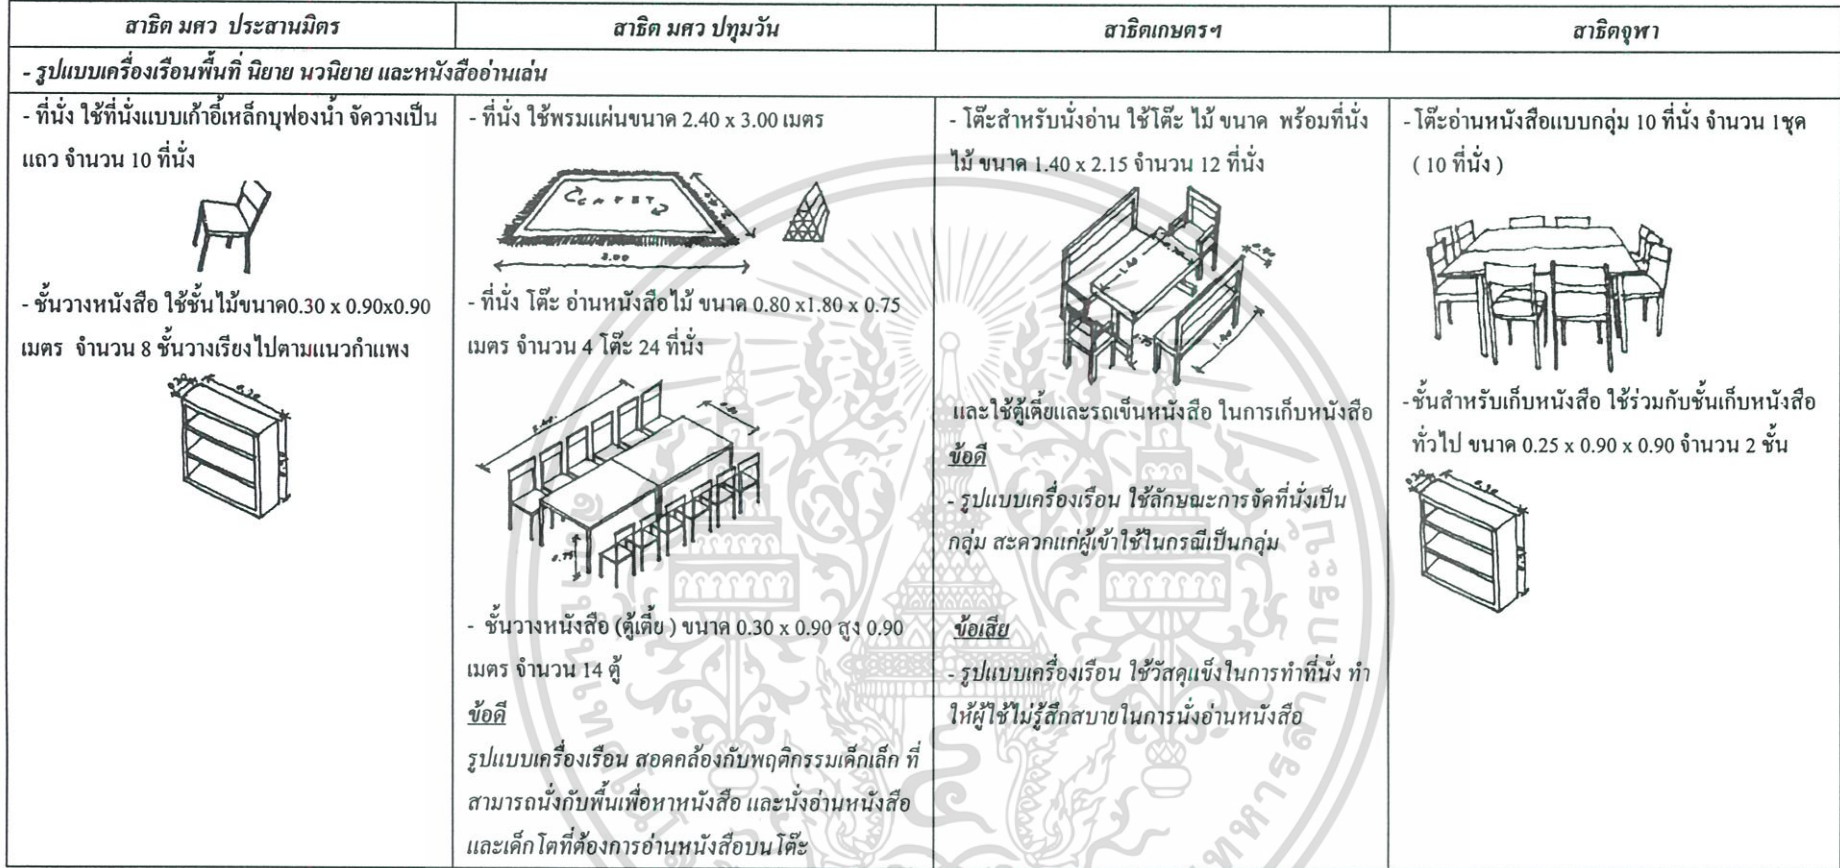 สาธิต มศว ประสานมิตร
สาธิต มศว ปทุมวัน
สาธิตเกษตรฯ
สาธิตจุฬา
- รูปแบบเครื่องเรือนพื้นที่ นิยาย นวนิยาย และหนังสืออ่านเล่น
- ที่นั่ง ใช้ที่นั่งแบบเก้าอี้เหล็กบุฟองน้ำ จัดวางเป็น
แถว จำนวน 10 ที่นั่ง
- ชั้นวางหนังสือ ใช้ชั้นไม้ขนาด0.30 x 0.90x0.90
เมตร จำนวน 8 ชั้นวางเรียงไปตามแนวกำแพง
- ที่นั่ง ใช้พรมแผ่นขนาด 2.40 x 3.00 เมตร
3.00
- ที่นั่ง โต๊ะ อ่านหนังสือไม้ ขนาด 0.80 x1.80 x 0.75
เมตร จำนวน 4 โต๊ะ 24 ที่นั่ง
0.75
- ชั้นวางหนังสือ (ตู้เตี้ย ) ขนาด 0.30 x 0.90 สูง 0.90
เมตร จำนวน 14 ตู้
ข้อดี
รูปแบบเครื่องเรือน สอดคล้องกับพฤติกรรมเด็กเล็ก ที่
สามารถนั่งกับพื้นเพื่อหาหนังสือ และนั่งอ่านหนังสือ
และเด็กโตที่ต้องการอ่านหนังสือบนโต๊ะ
- โต๊ะสำหรับนั่งอ่าน ใช้โต๊ะ ไม้ ขนาด พร้อมที่นั่ง
ไม้ ขนาด 1.40 x 2.15 จำนวน 12 ที่นั่ง
1.40
และใช้ตู้เตี้ยและรถเข็นหนังสือ ในการเก็บหนังสือ
ข้อดี
- รูปแบบเครื่องเรือน ใช้ลักษณะการจัดที่นั่งเป็น
กลุ่ม สะดวกแก่ผู้เข้าใช้ในกรณีเป็นกลุ่ม
ข้อเสีย
- รูปแบบเครื่องเรือน ใช้วัสดุแข็งในการทำที่นั่ง ทำ
ให้ผู้ใช้ไม่รู้สึกสบายในการนั่งอ่านหนังสือ
- โต๊ะอ่านหนังสือแบบกลุ่ม 10 ที่นั่ง จำนวน 1ชุด
( 10 ที่นั่ง )
-ชั้นสำหรับเก็บหนังสือ ใช้ร่วมกับชั้นเก็บหนังสือ
ทั่วไป ขนาด 0.25 x 0.90 x 0.90 จำนวน 2 ชั้น